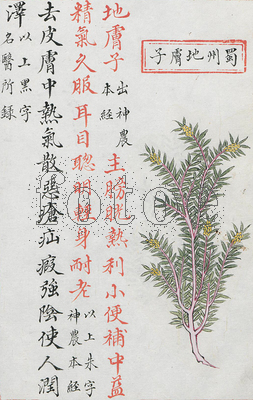 蜀州地膚子
地膚子 出神農本經 主膀胱熱利小便補中益
精氣久服耳目聰明輕身耐老 以上朱字神農本經
去皮膚中熱氣散惡瘡疝瘕強陰使人潤
澤 以上黑字名醫所錄
fotoe